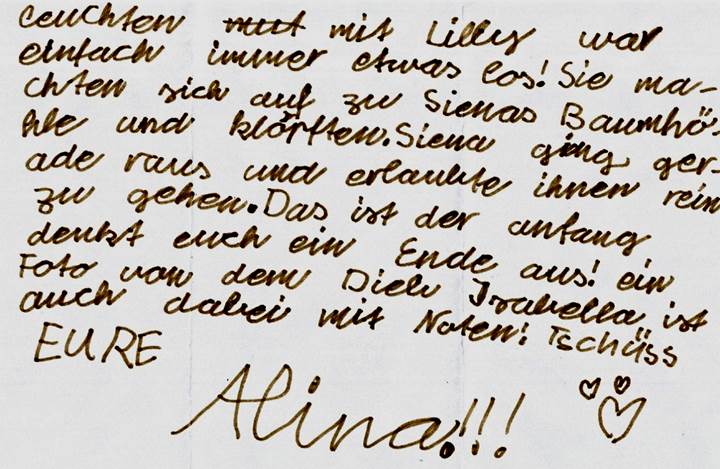 leuchten mit Lilly war
einfach immer etwas los! Sie ma-
chten sich auf zu Sienas Baumhö-
hle und klopften. Siena ging ger-
ade raus und erlaubte ihnen rein
zu gehen. Das ist der anfang
denkt euch ein Ende aus! ein
Foto von dem Isabella ist
auch dabei mit Noten! Tschüss
EURE
Alina!!!